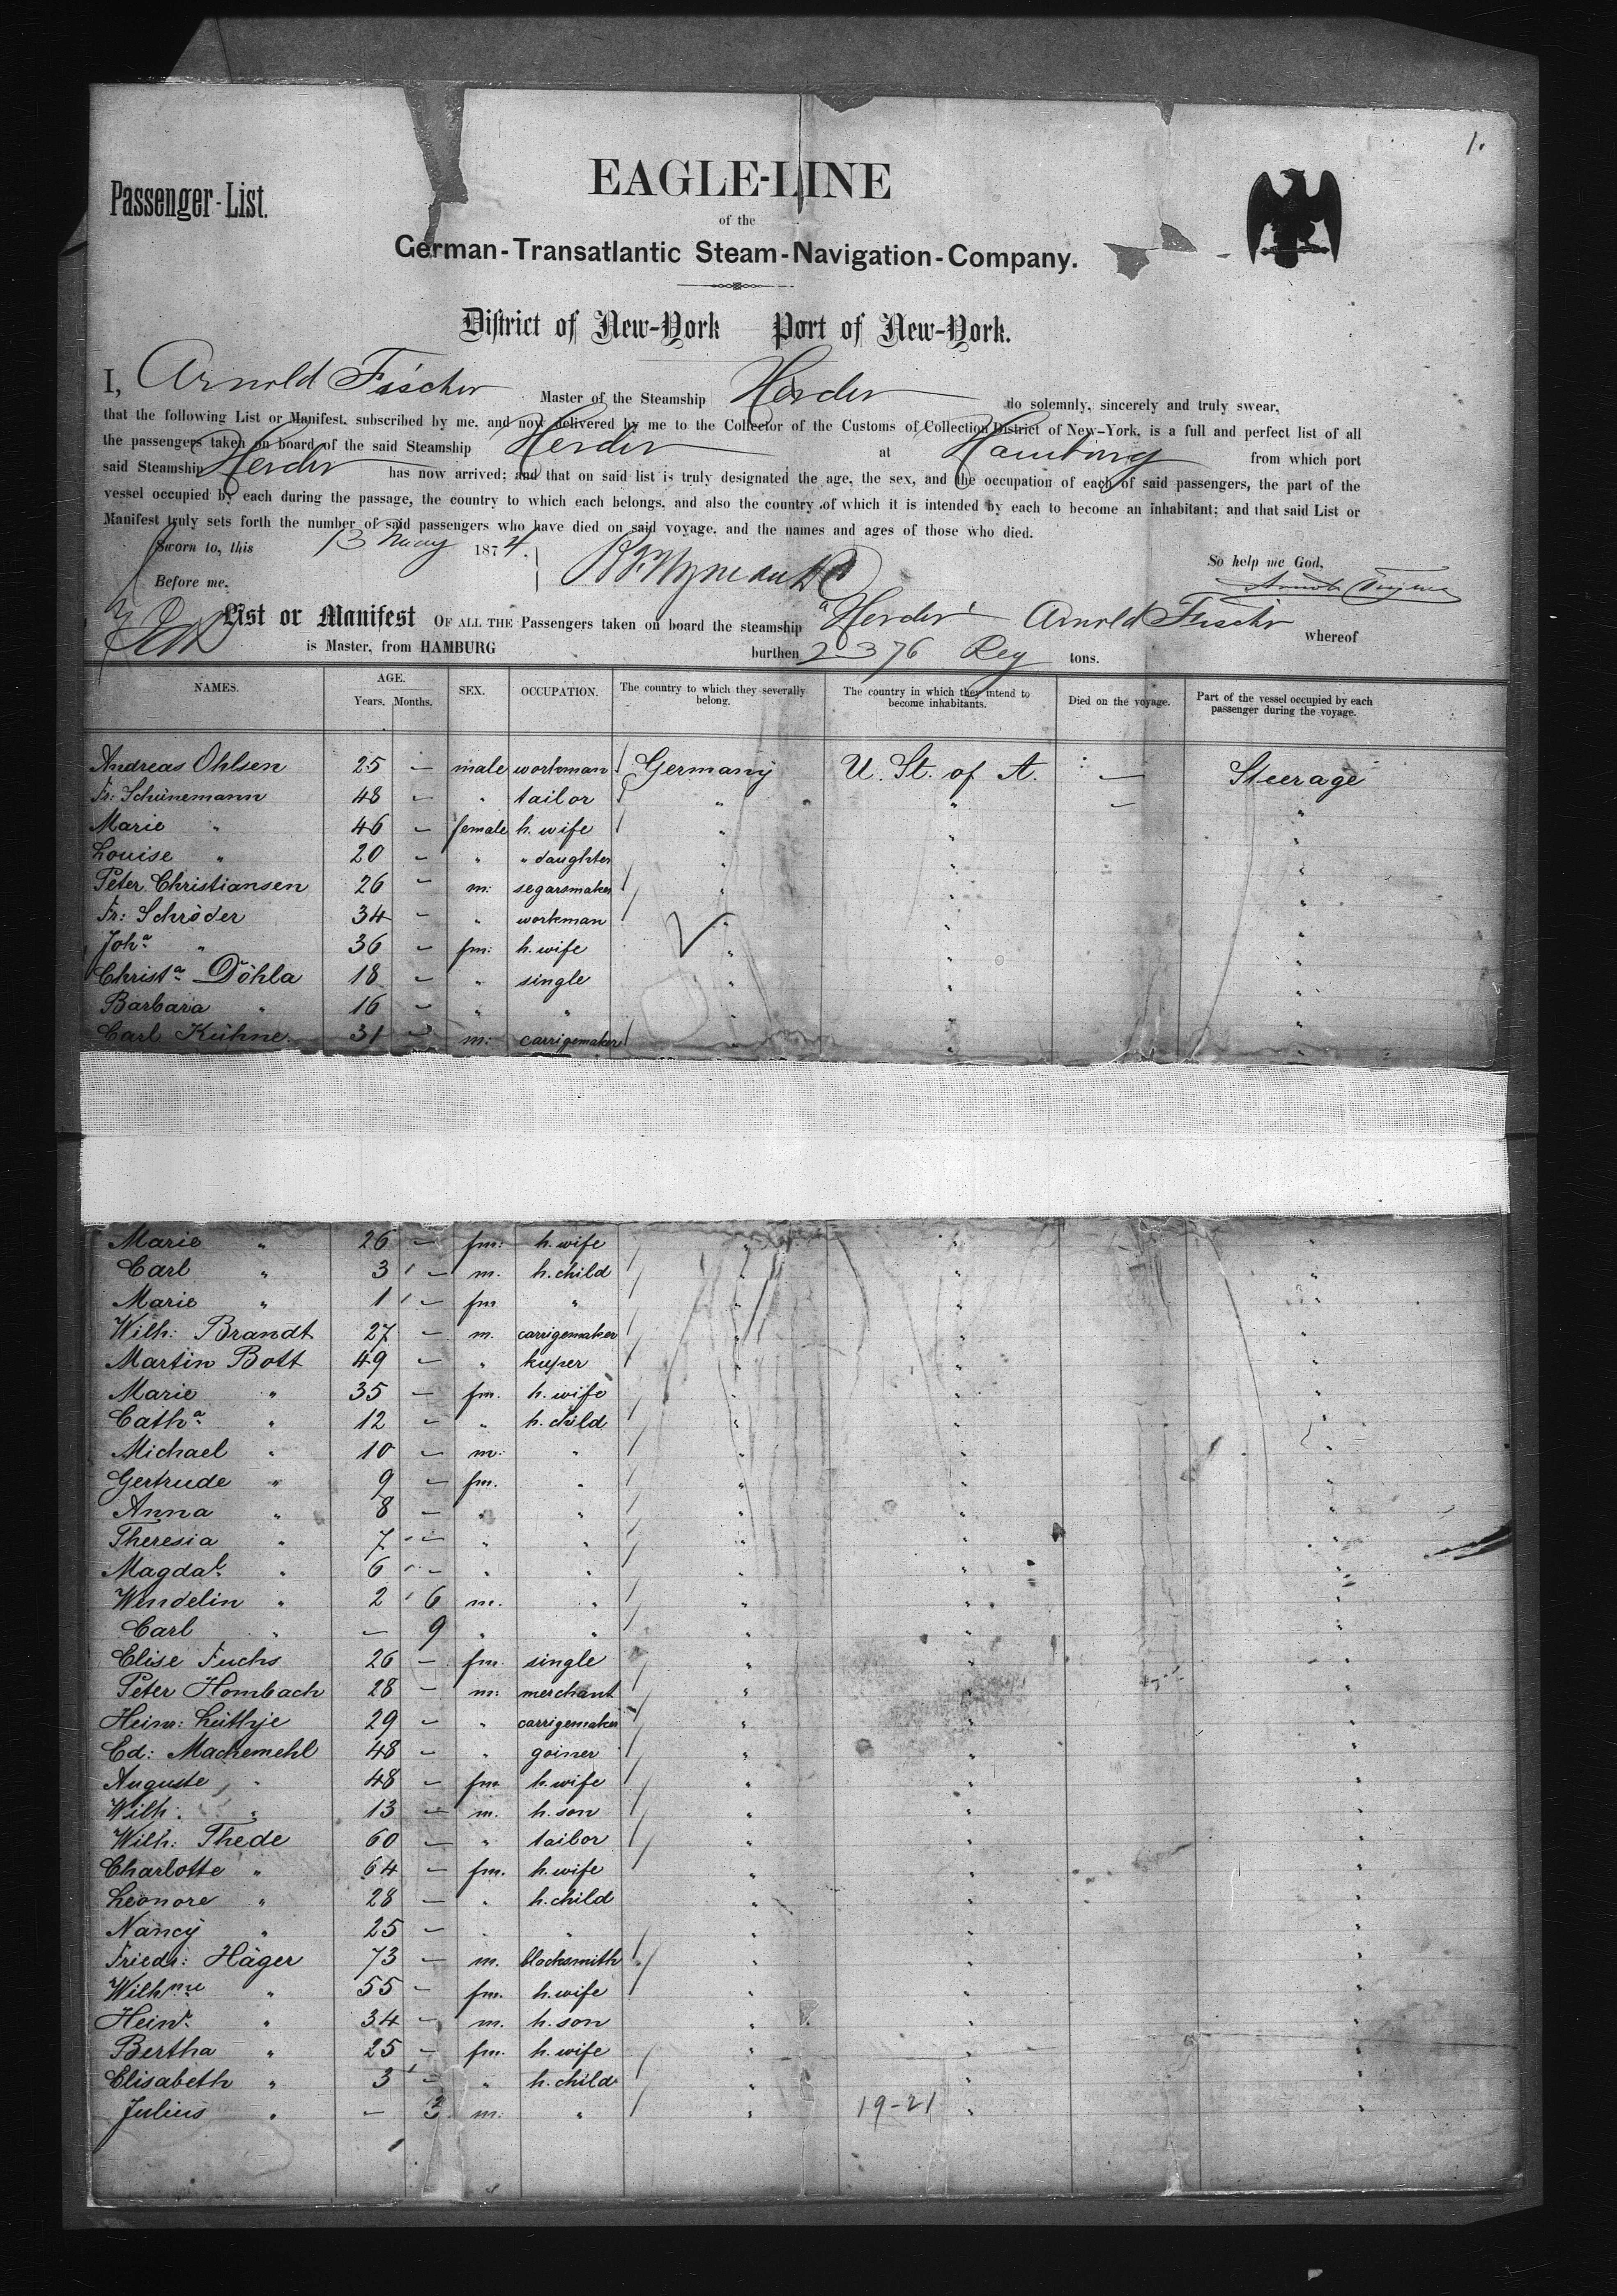 1.
Passenger-List.
EAGLE-LINE
of the
German-Transatlantic Steam-Navigation-Company.
District of New-York Port of New-York.
I, Arnold Fischer Master of the Steamship Herder do solemnly, sincerely and truly swear,
that the following List or Manifest, subscribed by me, and now delivered by me to the Collector of the Customs of Collection District of New-York, is a full and perfect list of all
the passengers taken on board of the said Steamship Herder at Hamburg from which port
said Steamship Herder has now arrived; and that on said list is truly designated the age, the sex, and the occupation of each of said passengers, the part of the
vessel occupied by each during the passage, the country to which each belongs, and also the country of which it is intended by each to become an inhabitant; and that said List or
Manifest truly sets forth the number of said passengers who have died on said voyage, and the names and ages of those who died.
Sworn to, this 13 May 1874.
So help me God,
Before me.
List or Manifest OF ALL THE Passengers taken on board the steamship "Herder" Arnold Fischer whereof
is Master, from HAMBURG burthen 2376 Reg tons.
NAMES. AGE. Years. Months. SEX. OCCUPATION. The country to which they severally belong. The country in which they intend to become inhabitants. Died on the voyage. Part of the vessel occupied by each passenger during the voyage.
Andreas Ohlsen 25 – male workman Germany U. St. of A. – Steerage
Fr: Schünemann 48 – " tailor " " – "
Marie " 46 – female h. wife " " "
Louise " 20 – " " daughter " " "
Peter Christiansen 26 – m: segarsmaker " " "
Fr: Schröder 34 – " workman " " "
Joha " 36 – fm: h. wife " " "
Christa Döhla 18 – " single " " "
Barbara " 16 – " " " " "
Carl Kühne 31 – m: carrigemaker " "
Marie " 26 – fm: h. wife " " "
Carl " 3 – m. h. child " " "
Marie " 1 – fm " " " "
Wilh: Brandt 27 – m. carrigemaker " " "
Martin Bott 49 – " kuper " " "
Marie " 35 – fm. h. wife " " "
Catha " 12 – " h. child " " "
Michael " 10 – m: " " " "
Gertrude " 9 – fm. " " " "
Anna " 8 – " " " " "
Theresia " 7 – " " " " "
Magdal. " 6 – " " " " "
Wendelin " 2 6 m. " " " "
Carl " – 9 " " " " "
Elise Fuchs 26 – fm. single " " "
Peter Hombach 28 – m: merchant " " "
Heinr: Lüthje 29 – " carrigemaker " " "
Ed: Machemehl 48 – " goiner " " "
Auguste " 48 – fm. h. wife " " "
Wilh: " 13 – m. h. son " " "
Wilh: Thede 60 – " tailor " " "
Charlotte " 64 – fm. h. wife " " "
Leonore " 28 – " h. child " " "
Nancy " 25 – " " " " "
Friedr: Häger 73 – m. blacksmith " " "
Wilhme " 55 – fm. h. wife " " "
Heinr. " 34 – m. h. son " " "
Bertha " 25 – fm. h. wife " " "
Elisabeth " 3 – " h. child " " "
Julius " – 3 m: " " 19-21 " "